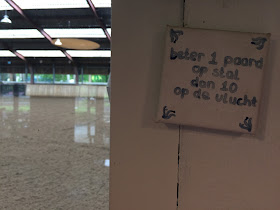 beter 1 paard
op stal
dan 10
op de vlucht